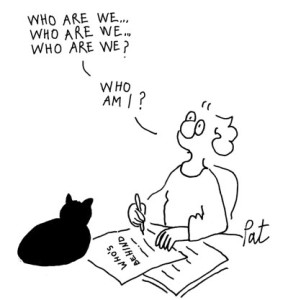 WHO ARE WE...
WHO ARE WE...
WHO ARE WE?
WHO
AM I?
WHO'S
BEHIND
Pat